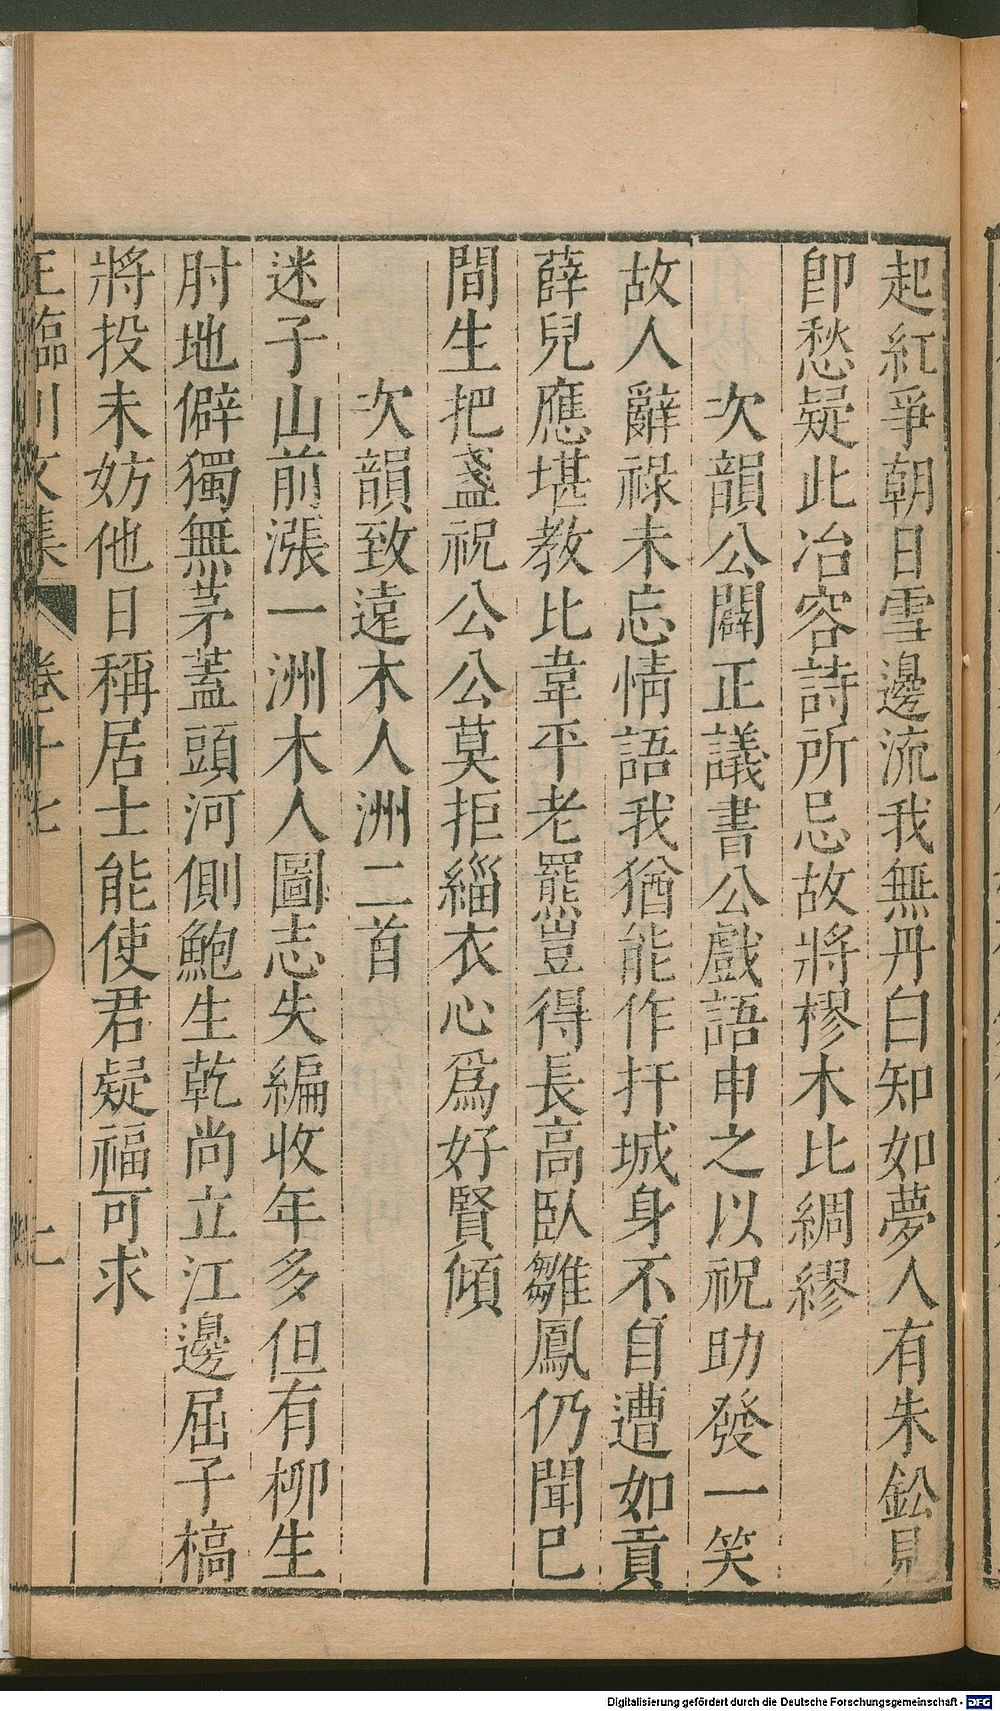 起紅爭朝日雪邊流我無丹白知如夢人有朱鈆見
卽愁疑此冶容詩所忌故將樛木比綢繆
次韻公闢正議書公戲語申之以祝助發一笑
故人辭祿未忘情語我猶能作扞城身不自遭如貢
薛兒應堪教比韋平老羆豈得長高臥雛鳳仍聞已
間生把盞祝公公莫拒緇衣心爲好賢傾
次韻致遠木人洲二首
迷子山前漲一洲木人圖志失編收年多但有柳生
肘地僻獨無茅蓋頭河側鮑生乾尚立江邊屈子槁
將投未妨他日稱居士能使君疑福可求
王臨川文集 卷十七 七
Digitalisierung gefördert durch die Deutsche Forschungsgemeinschaft - DFG